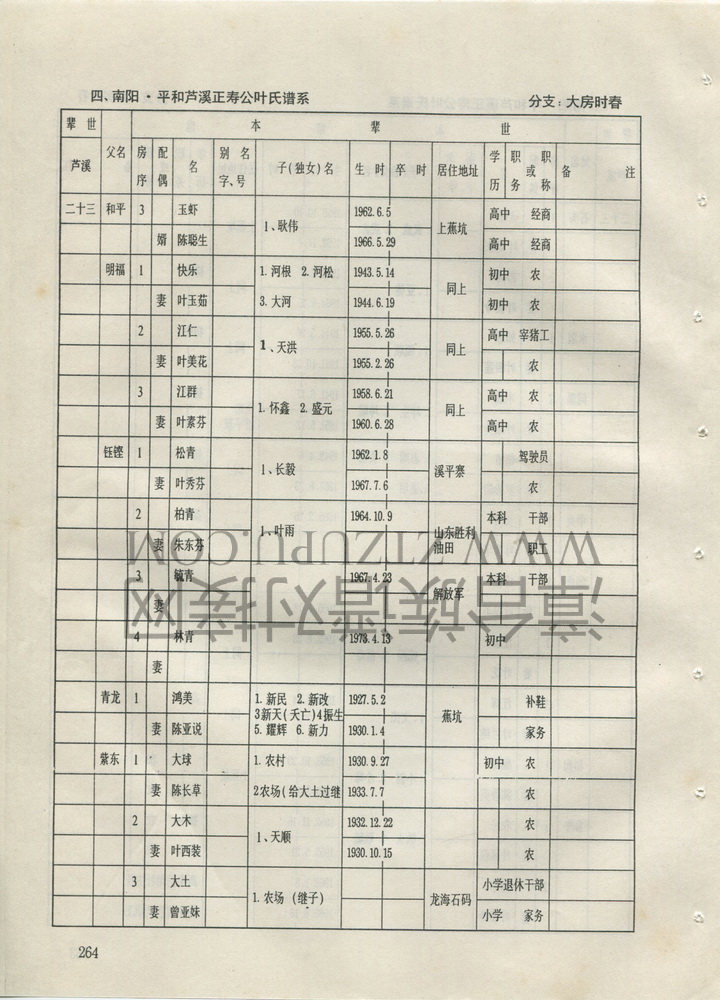 四、南阳·平和芦溪正寿公叶氏谱系 分支：大房时春
辈世 本 辈 世
芦溪 父名 房序 配偶 名 别名字、号 子(独女)名 生时 卒时 居住地址 学历 职务或职称 备注
二十三 和平 3 玉虾 1、耿伟 1962.6.5 上蕉坑 高中 经商
婿 陈聪生 1966.5.29 高中 经商
明福 1 快乐 1.河根 2.河松 1943.5.14 同上 初中 农
妻 叶玉茹 3.大河 1944.6.19 初中 农
2 江仁 1、天洪 1955.5.26 同上 高中 宰猪工
妻 叶美花 1955.2.26 农
3 江群 1.怀鑫 2.盛元 1958.6.21 同上 高中 农
妻 叶素芬 1960.6.28 高中 农
钰铿 1 松青 1、长毅 1962.1.8 溪平寨 驾驶员
妻 叶秀芬 1967.7.6 农
2 柏青 1、叶雨 1964.10.9 山东胜利油田 本科 干部
妻 朱东芬 职工
3 毓青 1967.4.23 解放军 本科 干部
妻
4 林青 1973.4.13 初中
妻
青龙 1 鸿美 1.新民 2.新改 1927.5.2 蕉坑 补鞋
3新天(夭亡)4振生
妻 陈亚说 5.耀辉 6.新力 1930.1.4 家务
紫东 1 大球 1.农村 1930.9.27 初中 农
妻 陈长草 2农场(给大土过继 1933.7.7 农
2 大木 1、天顺 1932.12.22 农
妻 叶西装 1930.10.15 农
3 大土 1.农场(继子) 龙海石码 小学退休干部
妻 曾亚妹 小学 家务
264
WWW.ZTZUPU.COM
漳台族谱对接网